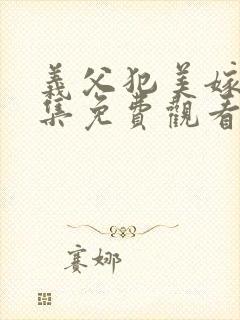 義父犯美嫁
集免費觀看
賽娜